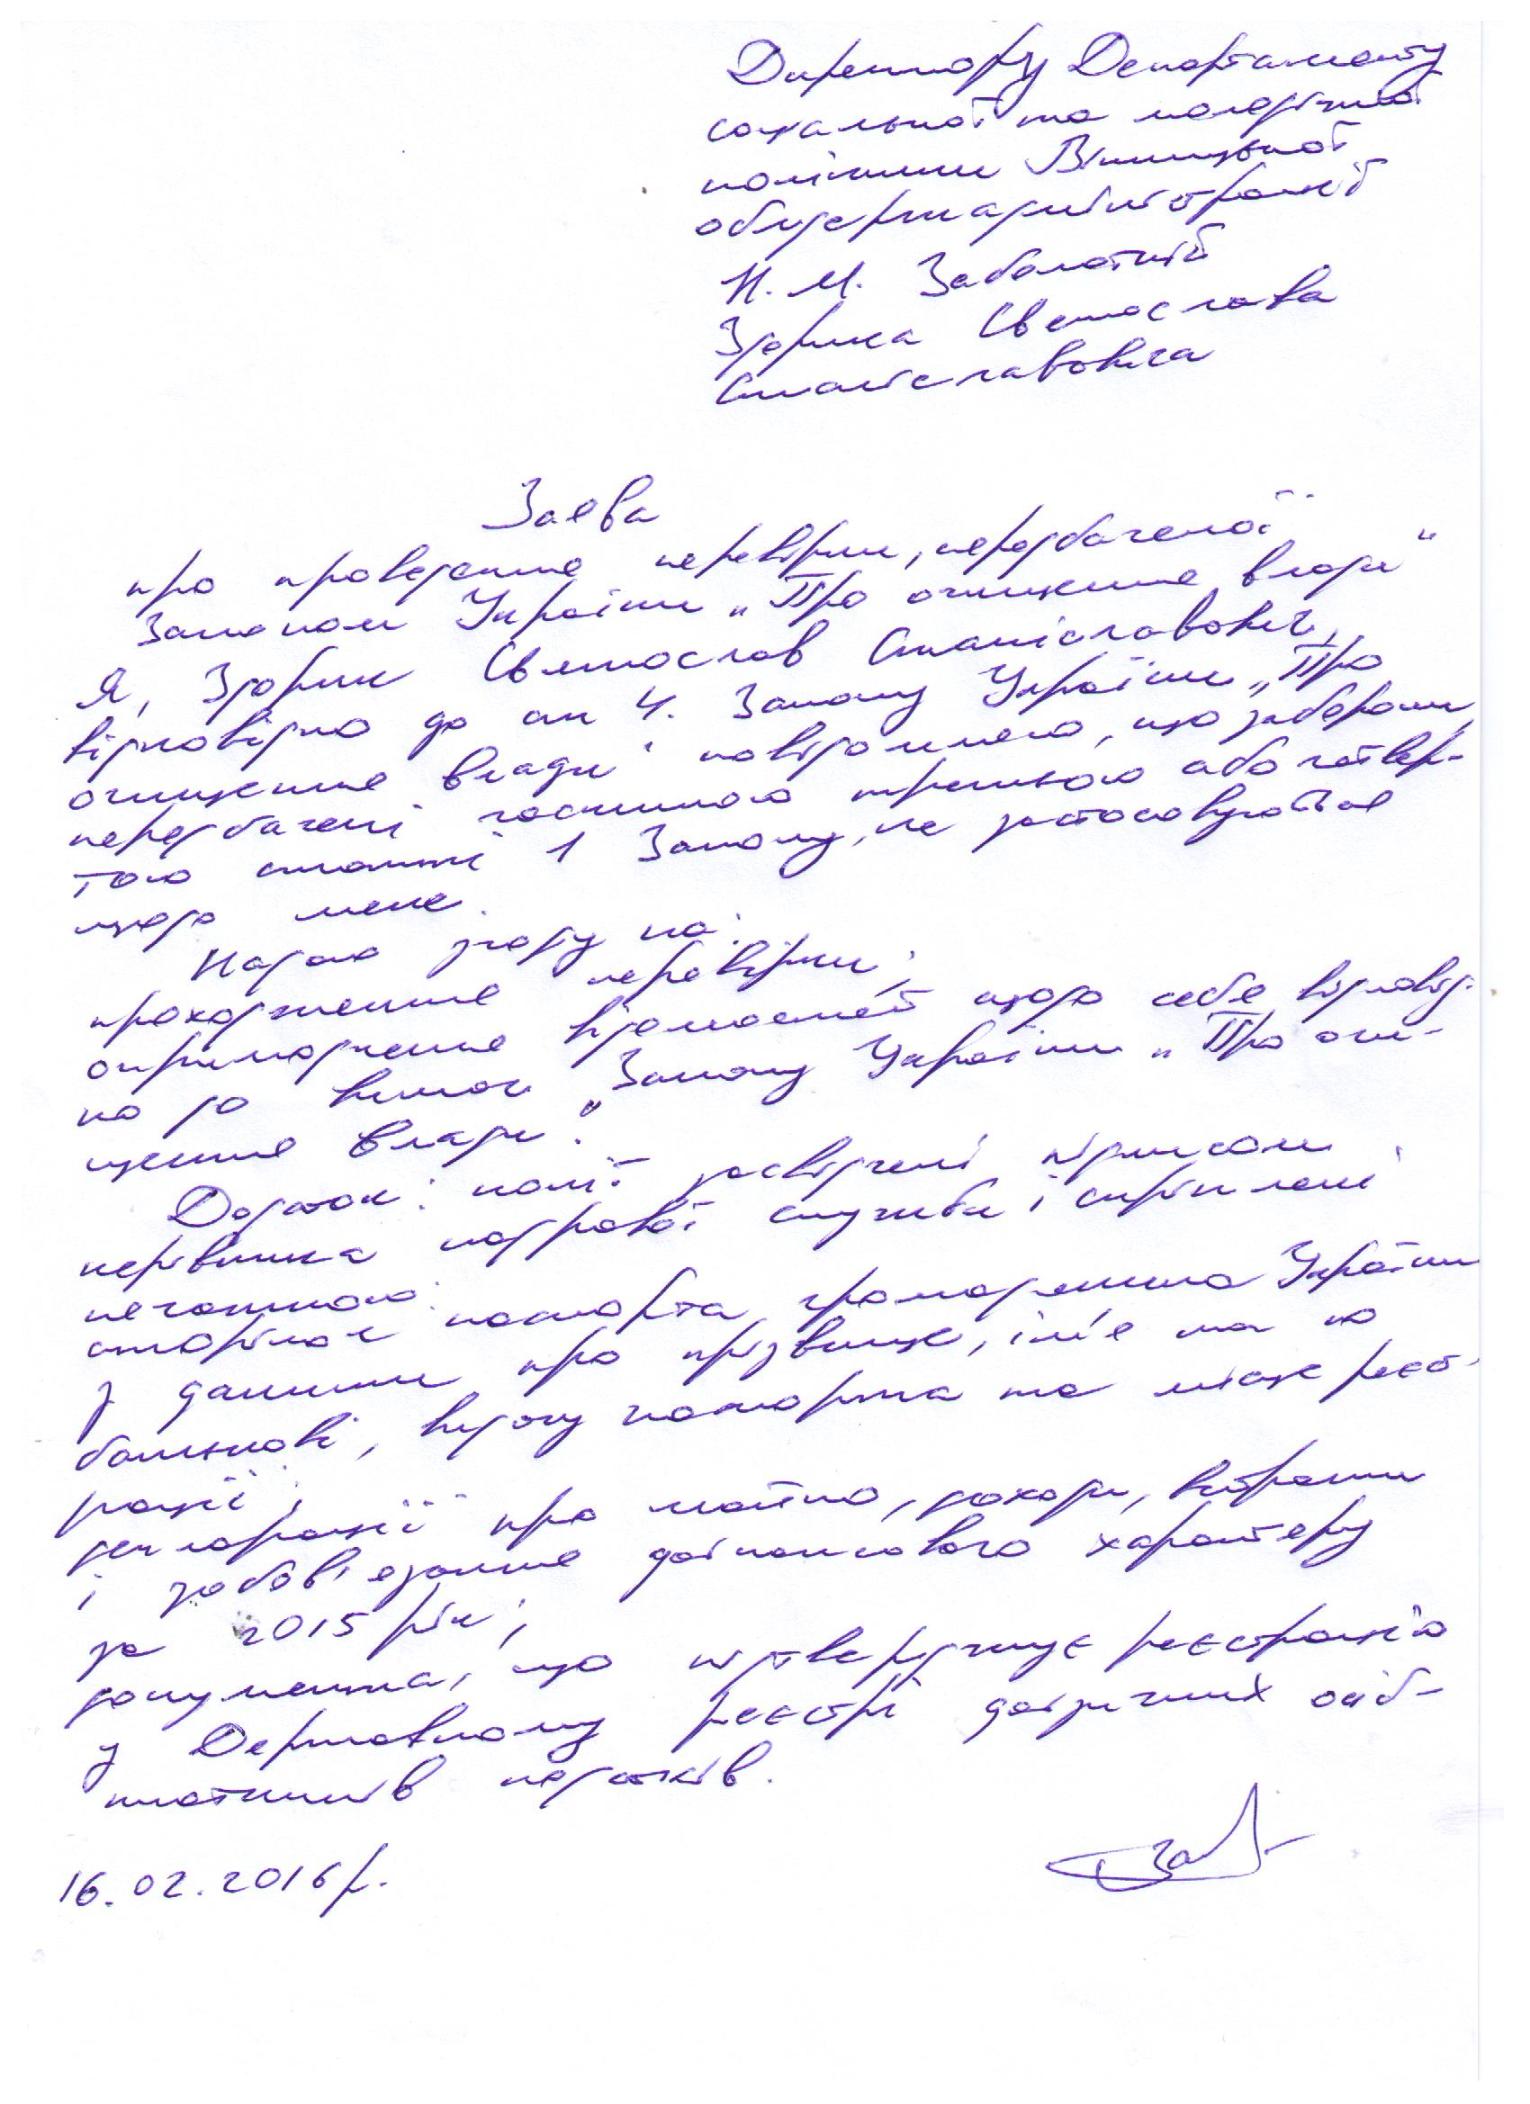 Директору Департаменту
соціальної та молодіжної
політики Вінницької
облдержадміністрації
Н. М. Заболотній
Здорика Святослава
Станіславовича
Заява
про проведення перевірки, передбаченої
Законом України „Про очищення влади"
Я, Здорик Святослав Станіславович,
відповідно до ст 4. Закону України „Про
очищення влади" повідомляю, що заборони,
передбачені частиною третьою або четвер-
тою статті 1 Закону, не застосовуються
щодо мене.
Надаю згоду на:
проходження перевірки;
оприлюднення відомостей щодо себе відповід-
но до вимог „Закону України „Про очи-
щення влади".
Додаток: копії засвідчені підписом
керівника кадрової служби і скріплені
печаткою:
сторінок паспорта громадянина України
з даними про прізвище, ім'я та по
батькові, видачу паспорта та місце реєст-
рації;
декларації про майно, доходи, витрати
і зобов'язання фінансового характеру
за 2015 рік;
документа, що підтверджує реєстрацію
у Державному реєстрі фізичних осіб-
платників податків.
16.02.2016 р.